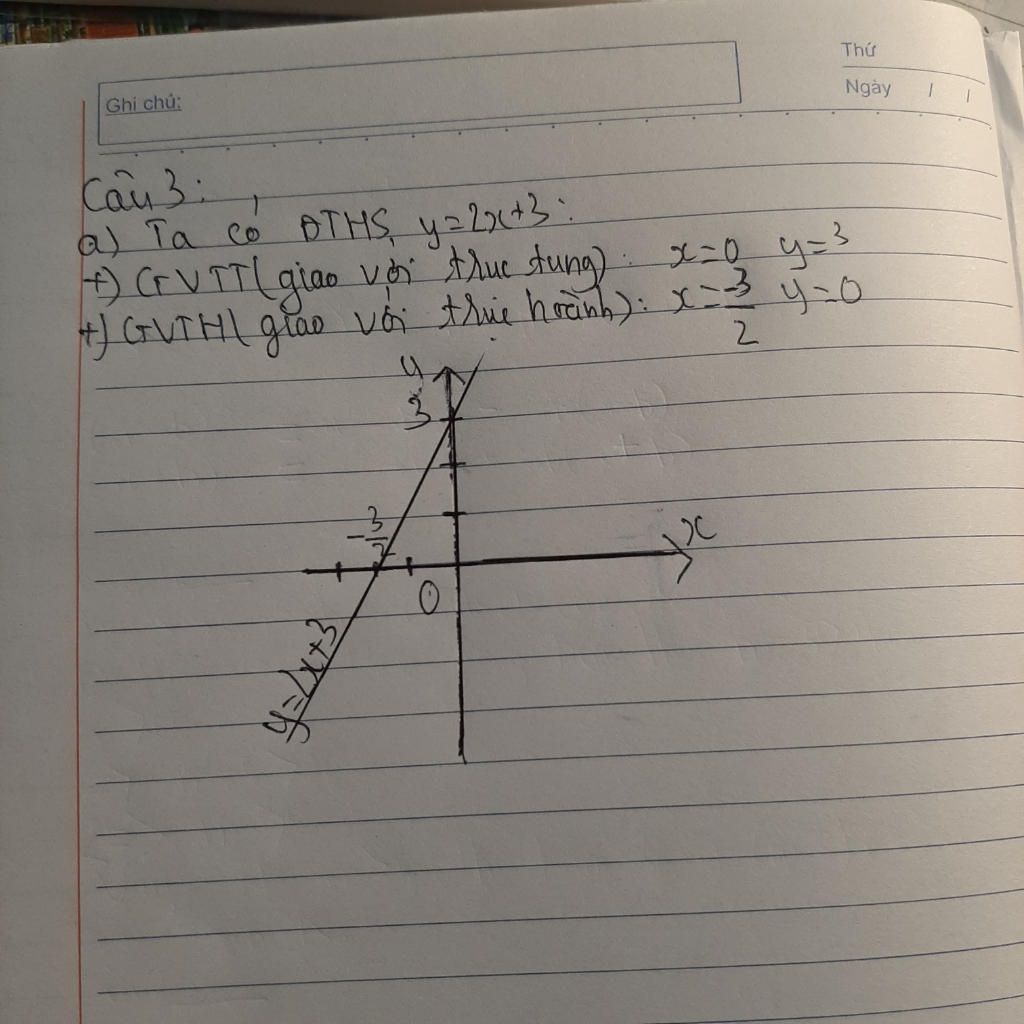 Thứ
Ngày / /
Ghi chú:
Câu 3:
a) Ta có ĐTHS y=2x+3:
+) GVTT(giao với trục tung): x=0 y=3
+) GVTH(giao với trục hoành): x=-3/2 y=0
y
3
-3/2
x
0
y=2x+3